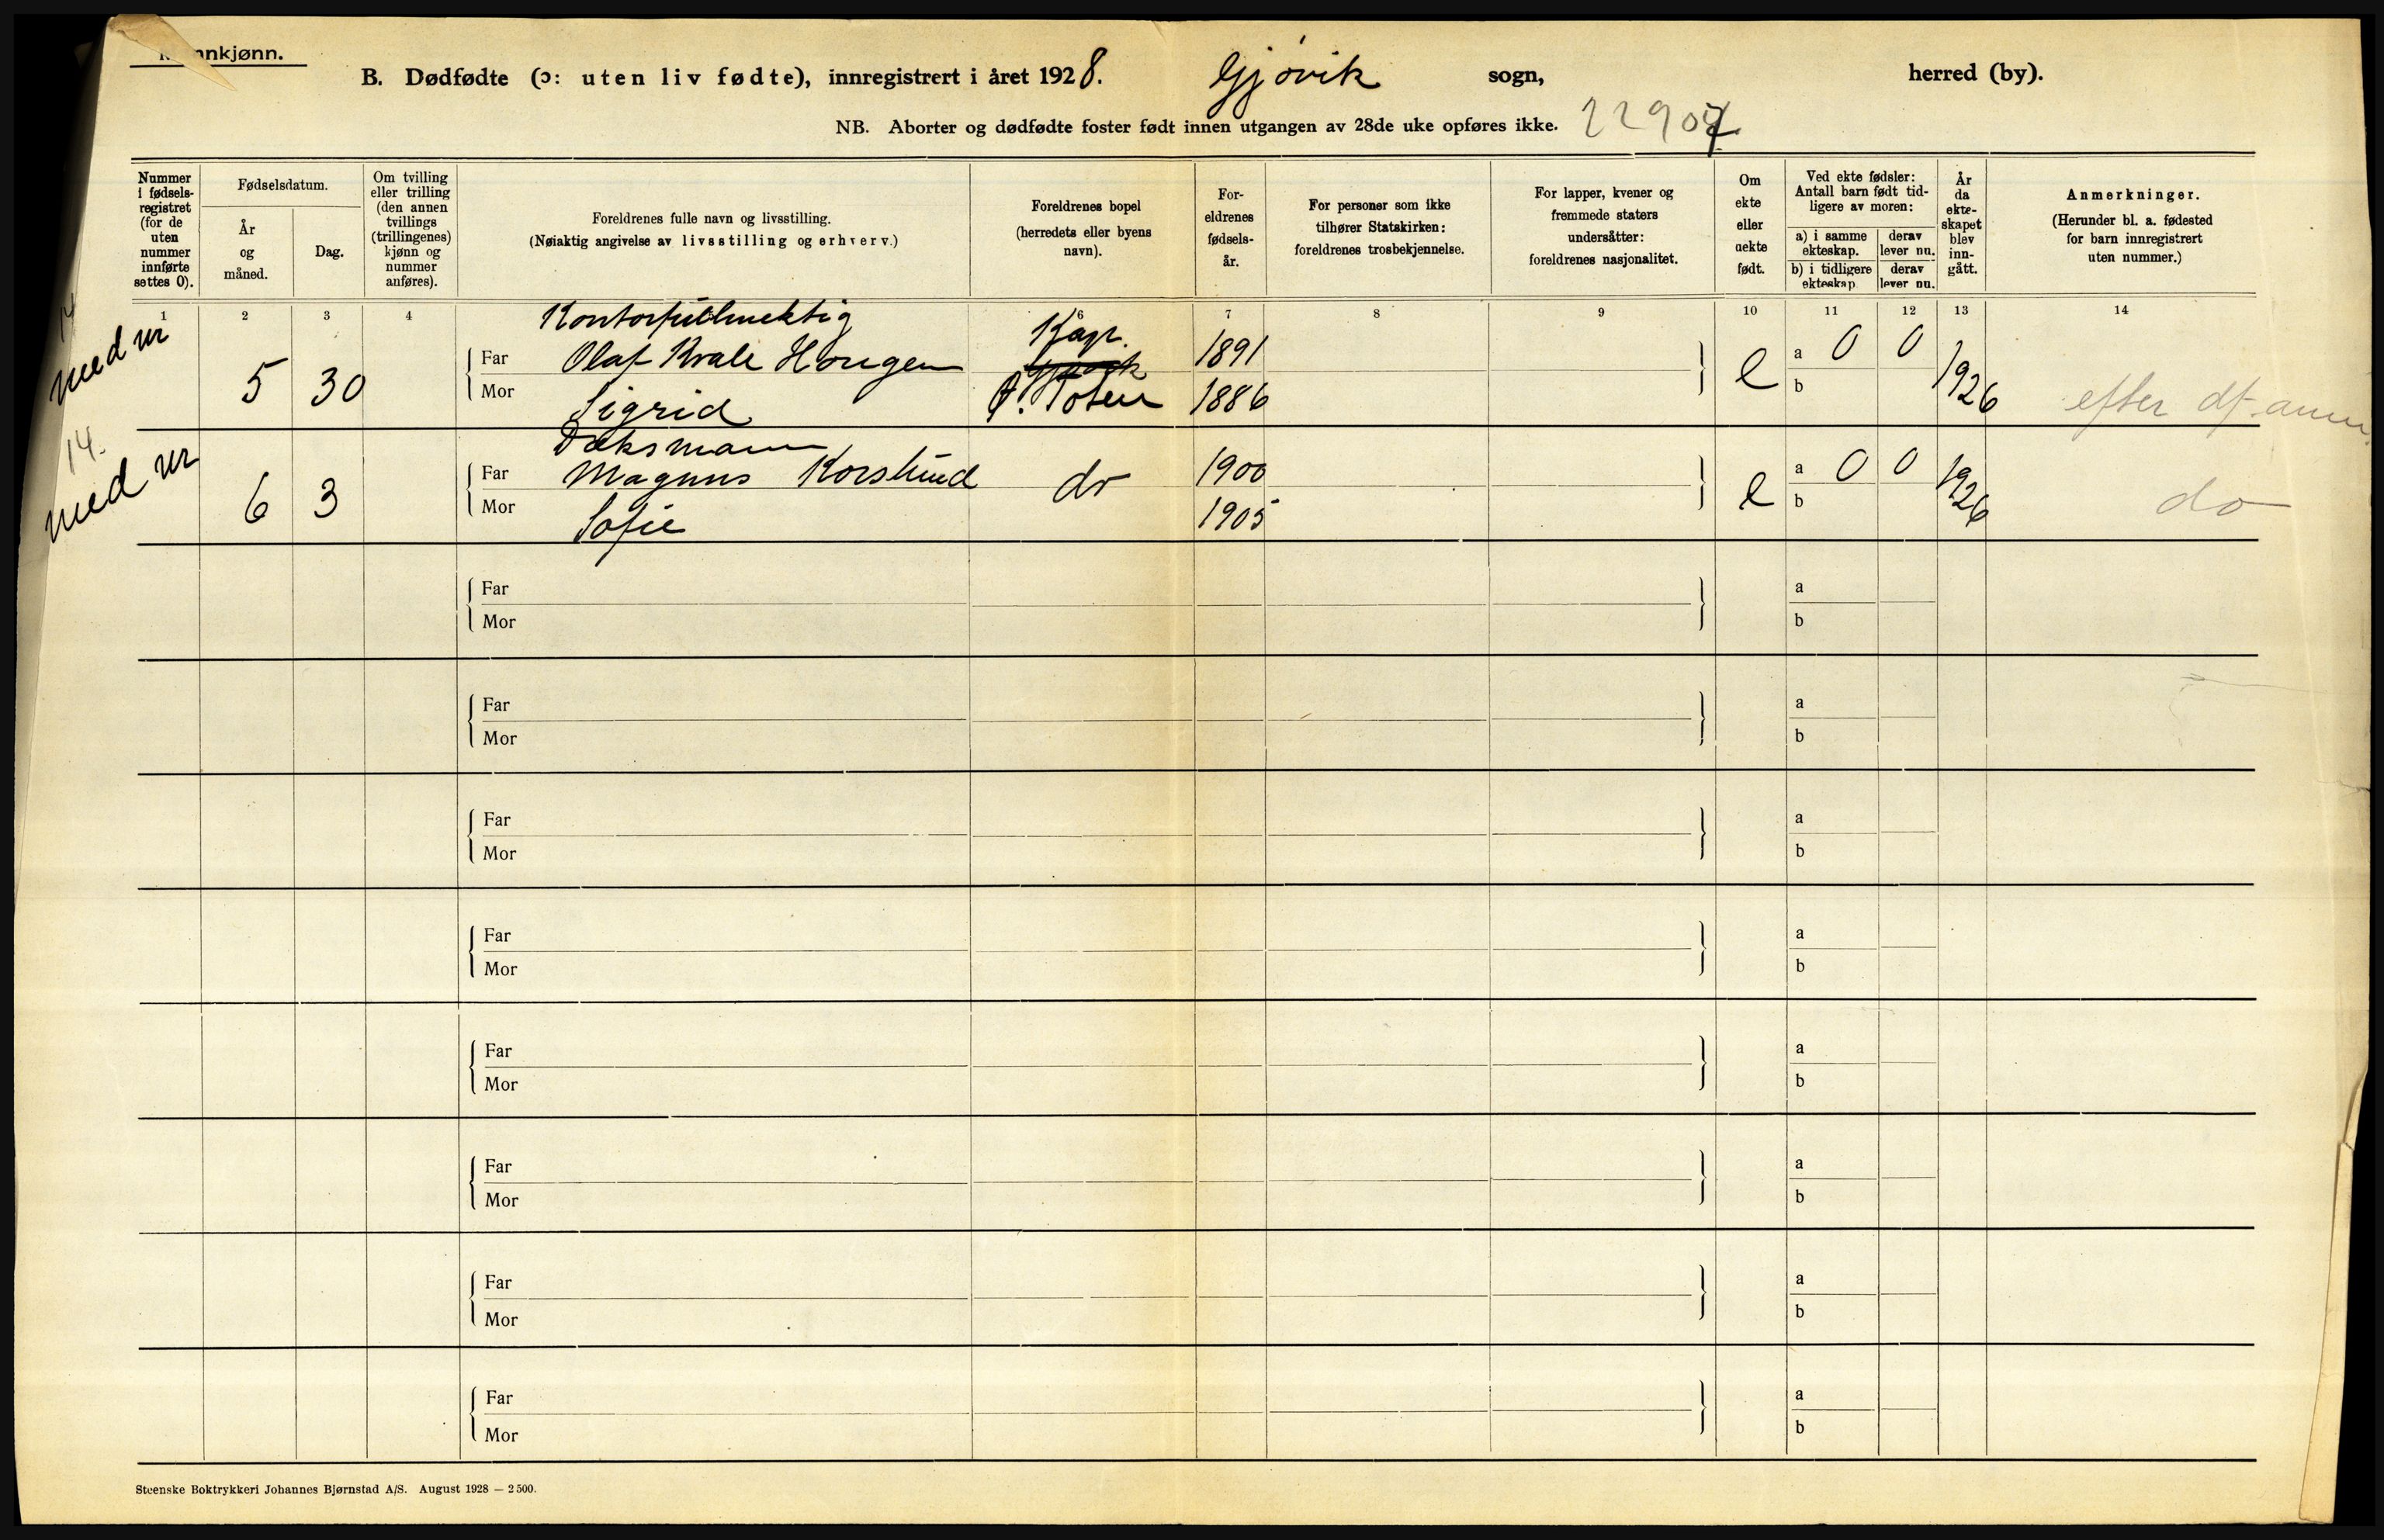 nnkjønn.
B. Dødfødte (ɔ: uten liv fødte), innregistrert i året 1928. Gjøvik sogn, herred (by).
NB. Aborter og dødfødte foster født innen utgangen av 28de uke opføres ikke. 22907
Nummer i fødselsregistret (for de uten nummer innførte settes 0).
Fødselsdatum.
År og måned.
Dag.
Om tvilling eller trilling (den annen tvillings (trillingenes) kjønn og nummer anføres).
Foreldrenes fulle navn og livsstilling.
(Nøiaktig angivelse av livsstilling og erhverv.)
Foreldrenes bopel (herredets eller byens navn).
Foreldrenes fødselsår.
For personer som ikke tilhører Statskirken: foreldrenes trosbekjennelse.
For lapper, kvener og fremmede staters undersåtter: foreldrenes nasjonalitet.
Om ekte eller uekte født.
Ved ekte fødsler: Antall barn født tidligere av moren:
a) i samme ekteskap. derav lever nu.
b) i tidligere ekteskap derav lever nu.
År da ekteskapet blev inngått.
Anmerkninger.
(Herunder bl. a. fødested for barn innregistrert uten nummer.)
1 2 3 4 6 7 8 9 10 11 12 13 14
med nr 5 30
Kontorfullmektig
Far Olaf Kvale Hougen 1891
Mor Sigrid Ø. Toten 1886
e a 0 0 b 1926 efter df. anm.
14.
med nr 6 3
Far Magnus Korslund do 1900
Mor Sofie 1905
e a 0 0 b 1926 do
Far a
Mor b
Far a
Mor b
Far a
Mor b
Far a
Mor b
Far a
Mor b
Far a
Mor b
Far a
Mor b
Far a
Mor b
Steenske Boktrykkeri Johannes Bjørnstad A/S. August 1928 — 2500.